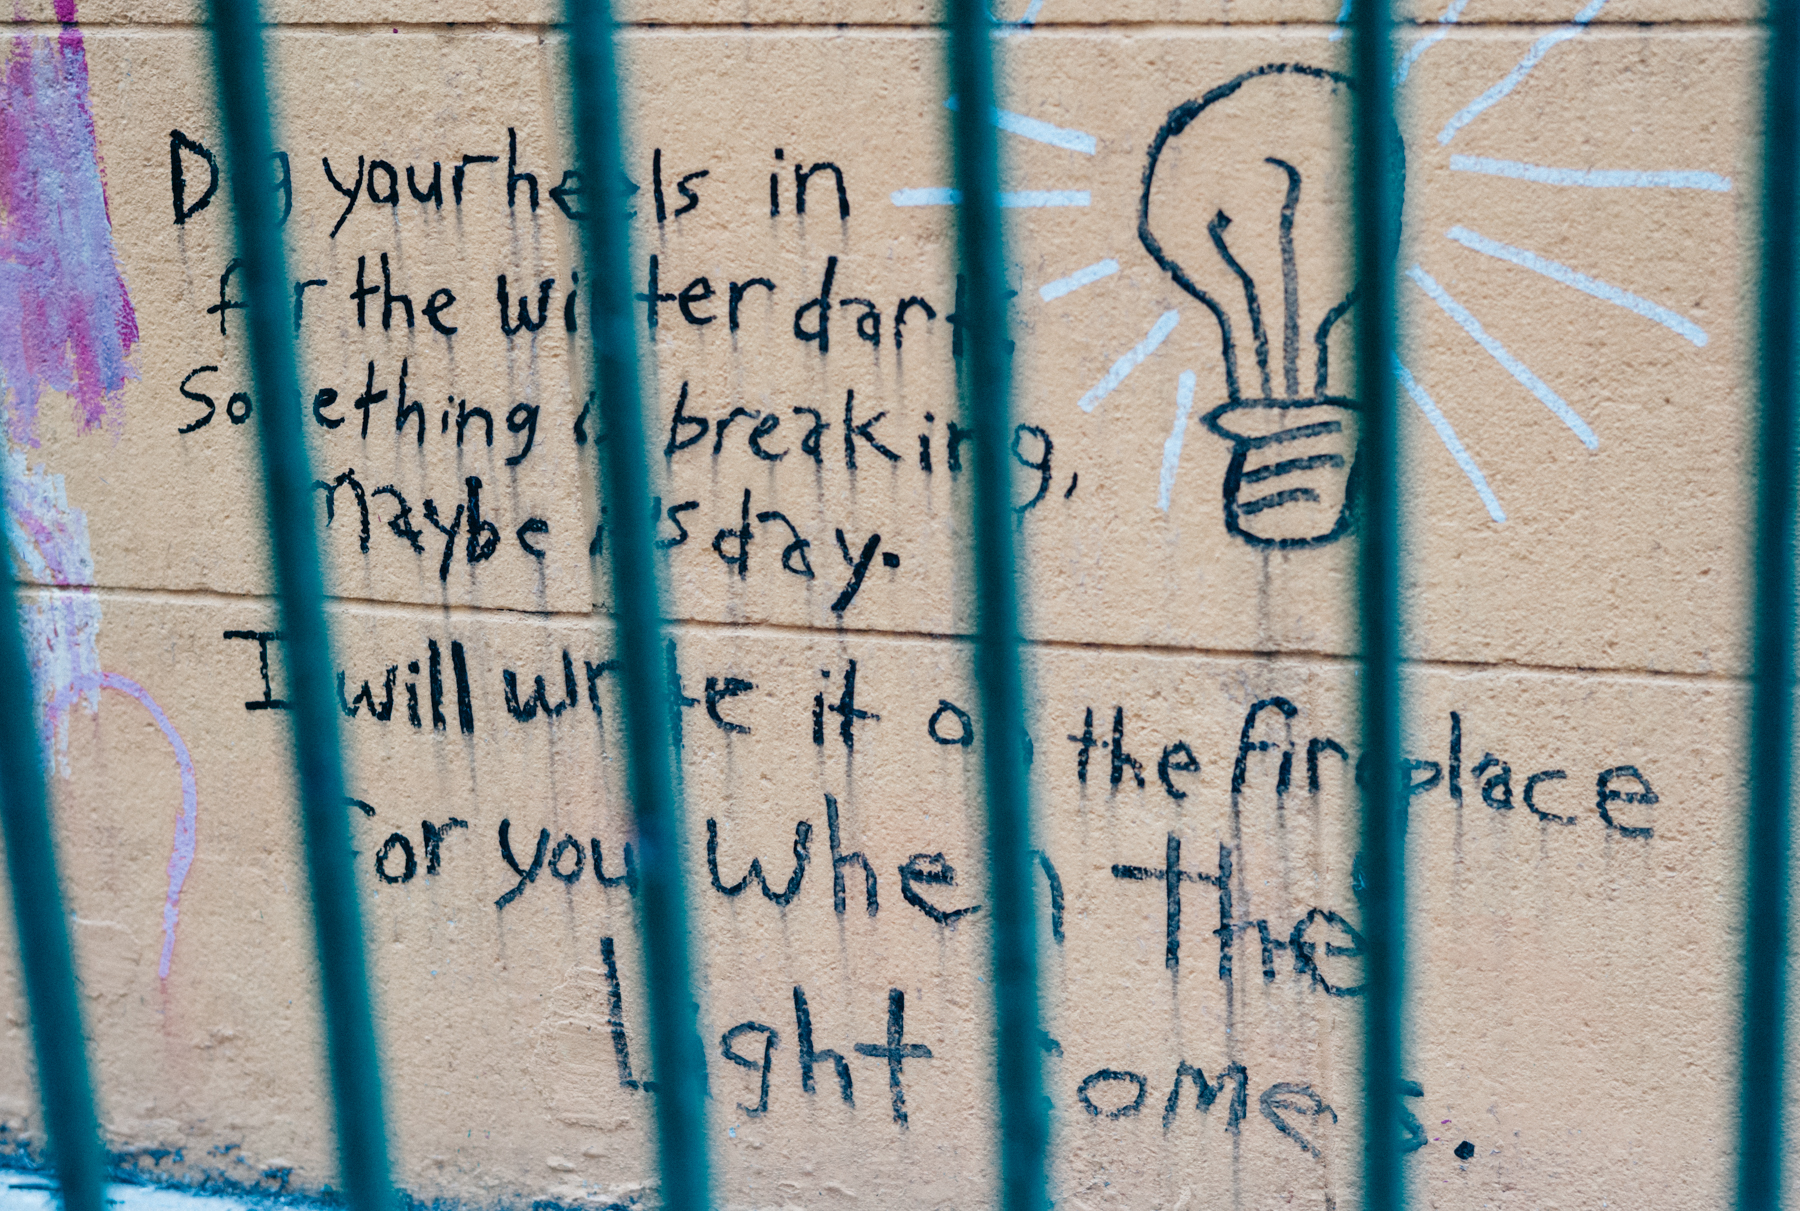 Dig your heels in
for the winter dark
Something is breaking,
Maybe it's day.
I will write it on the fireplace
for you when the
Light comes.